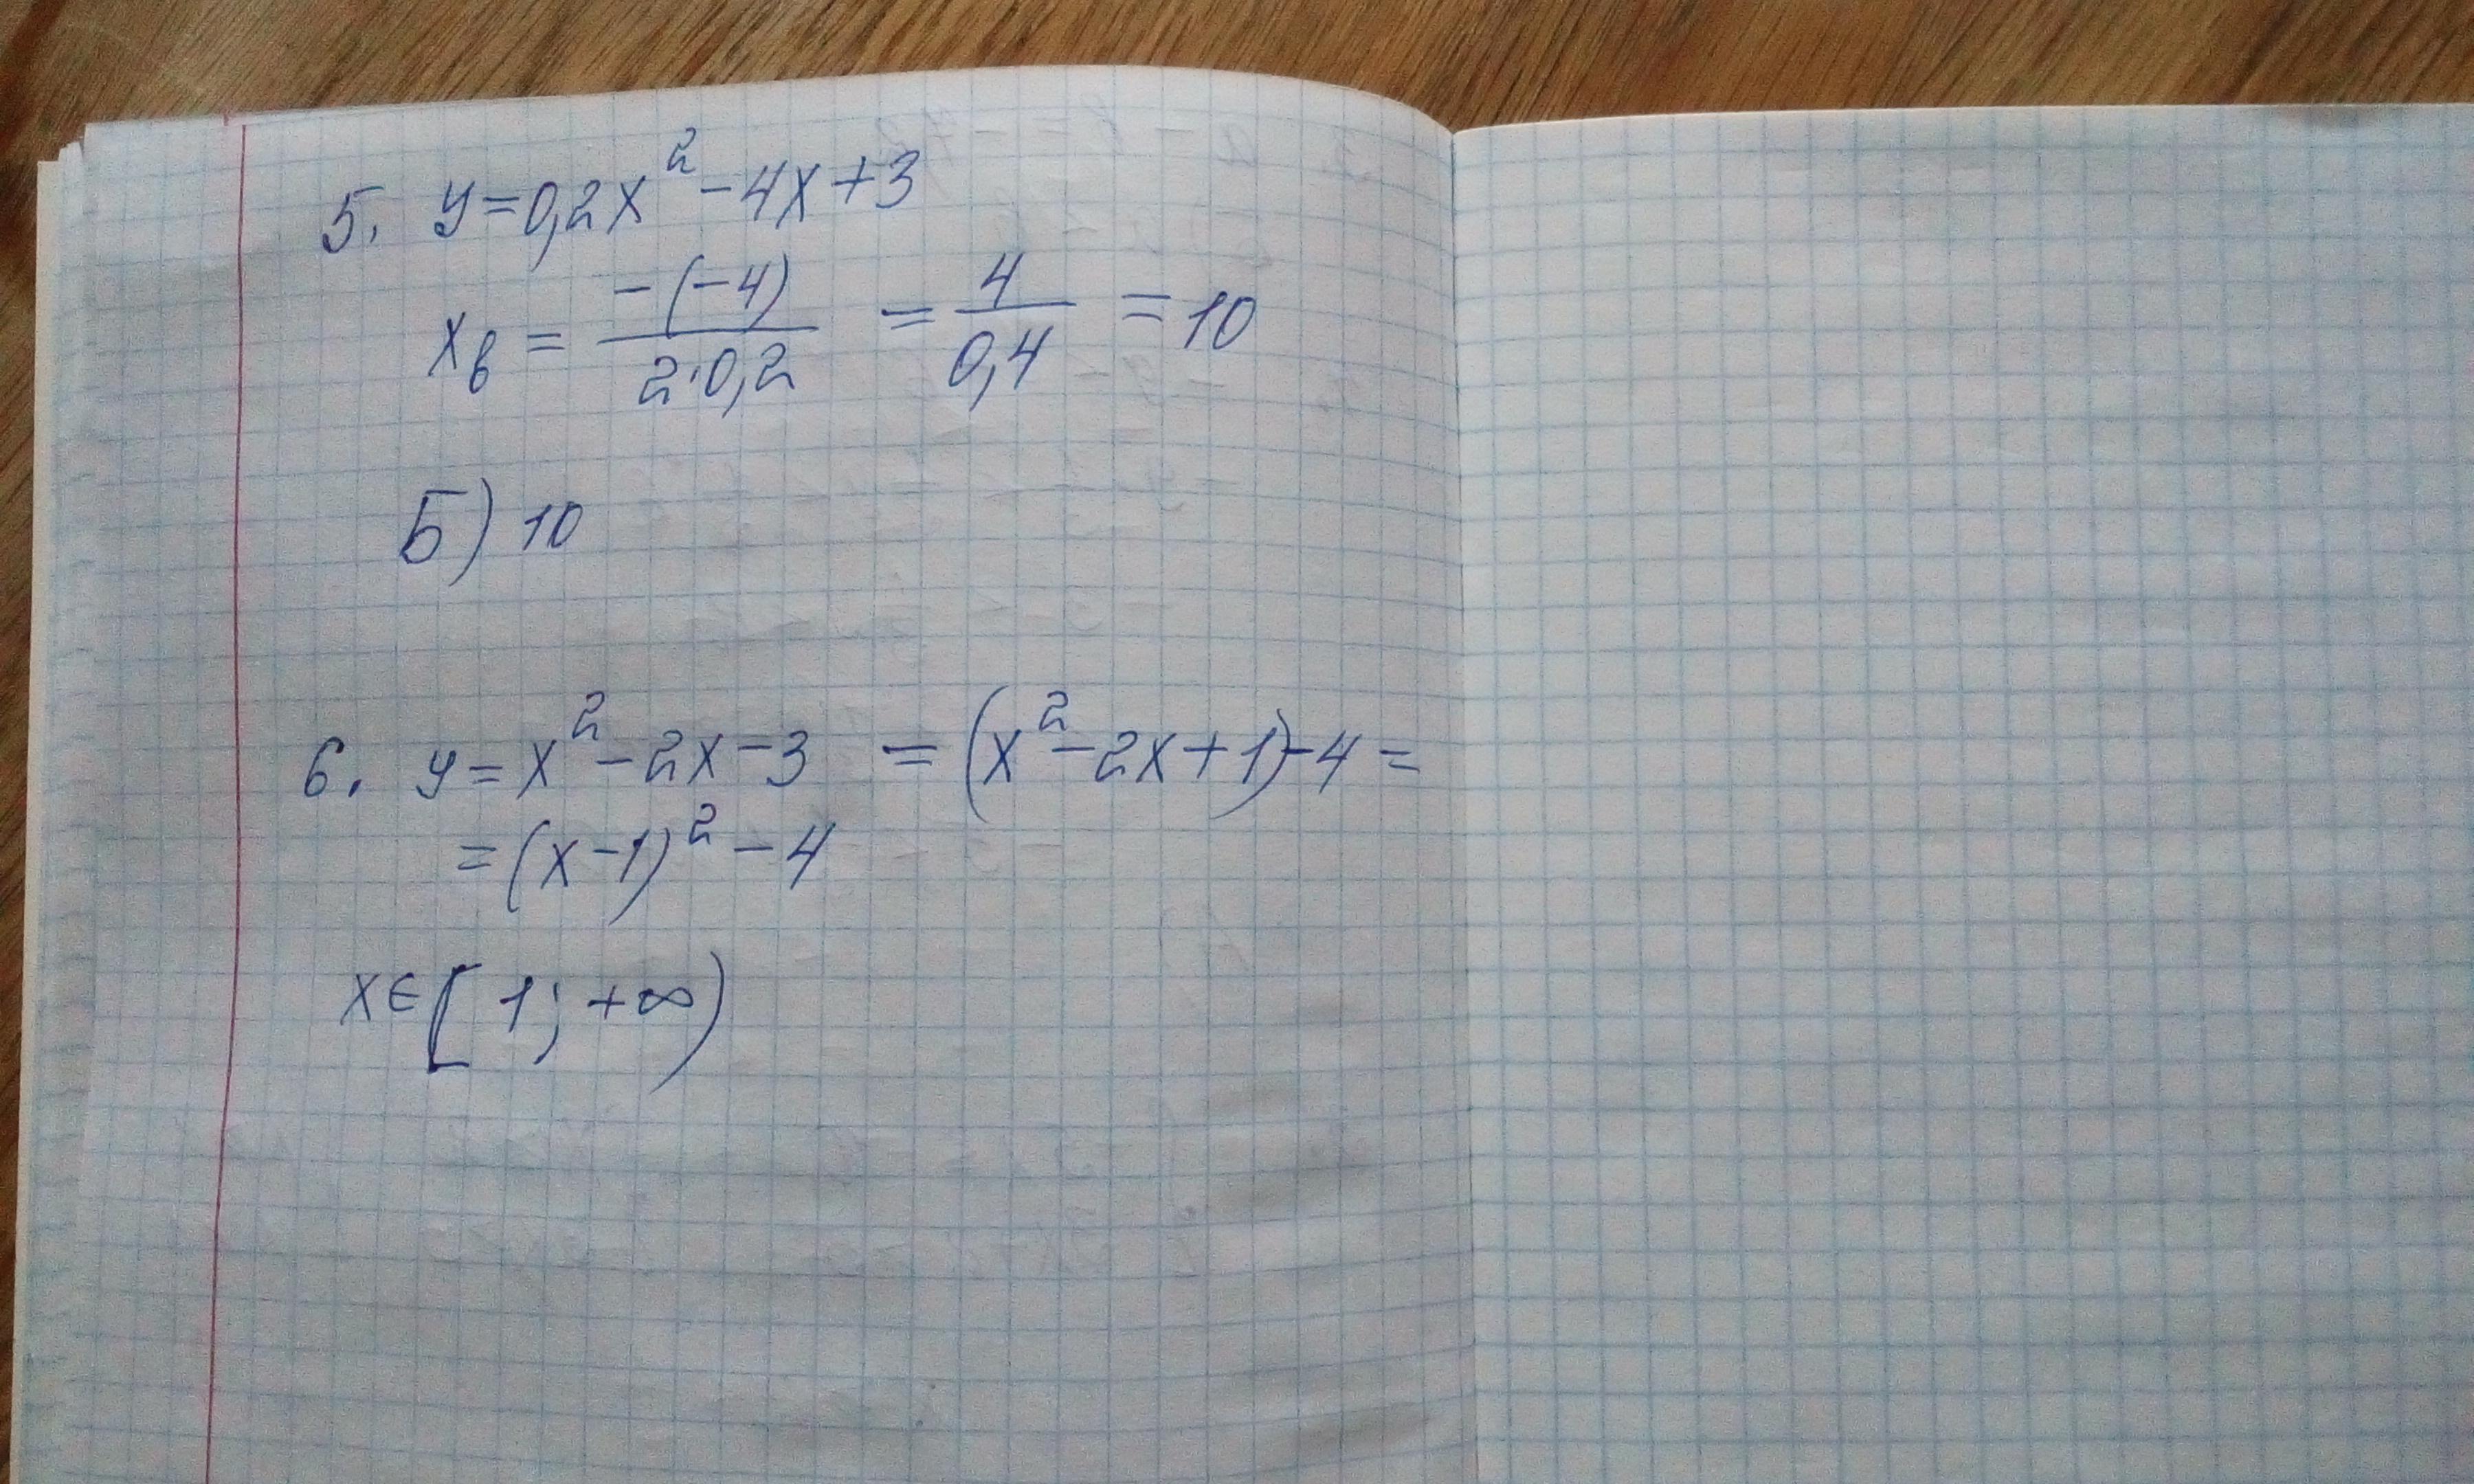 5. y=0,2x²-4x+3
xв = -(-4)/2·0,2 = 4/0,4 = 10
Б) 10
6. y=x²-2x-3 = (x²-2x+1)-4=
=(x-1)²-4
x∈[1;+∞)